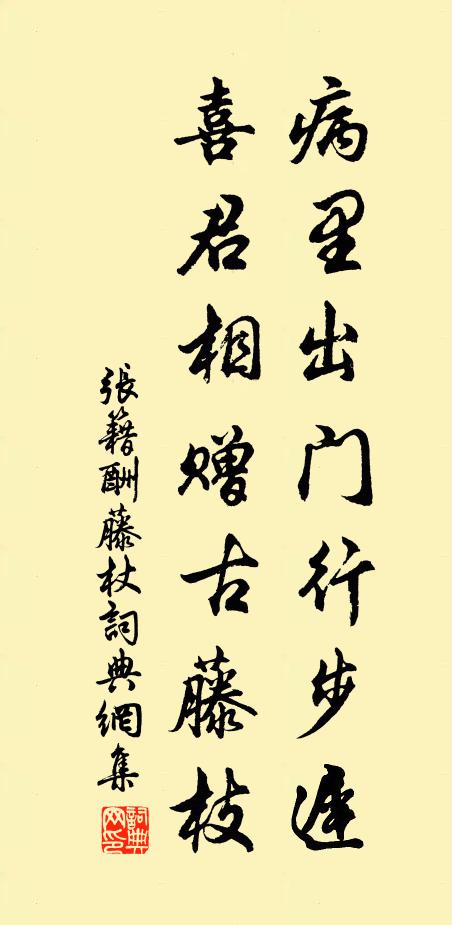 病里出门行步遲
喜君相赠古藤枝
張籍酬藤杖詞典網集
詞典网印